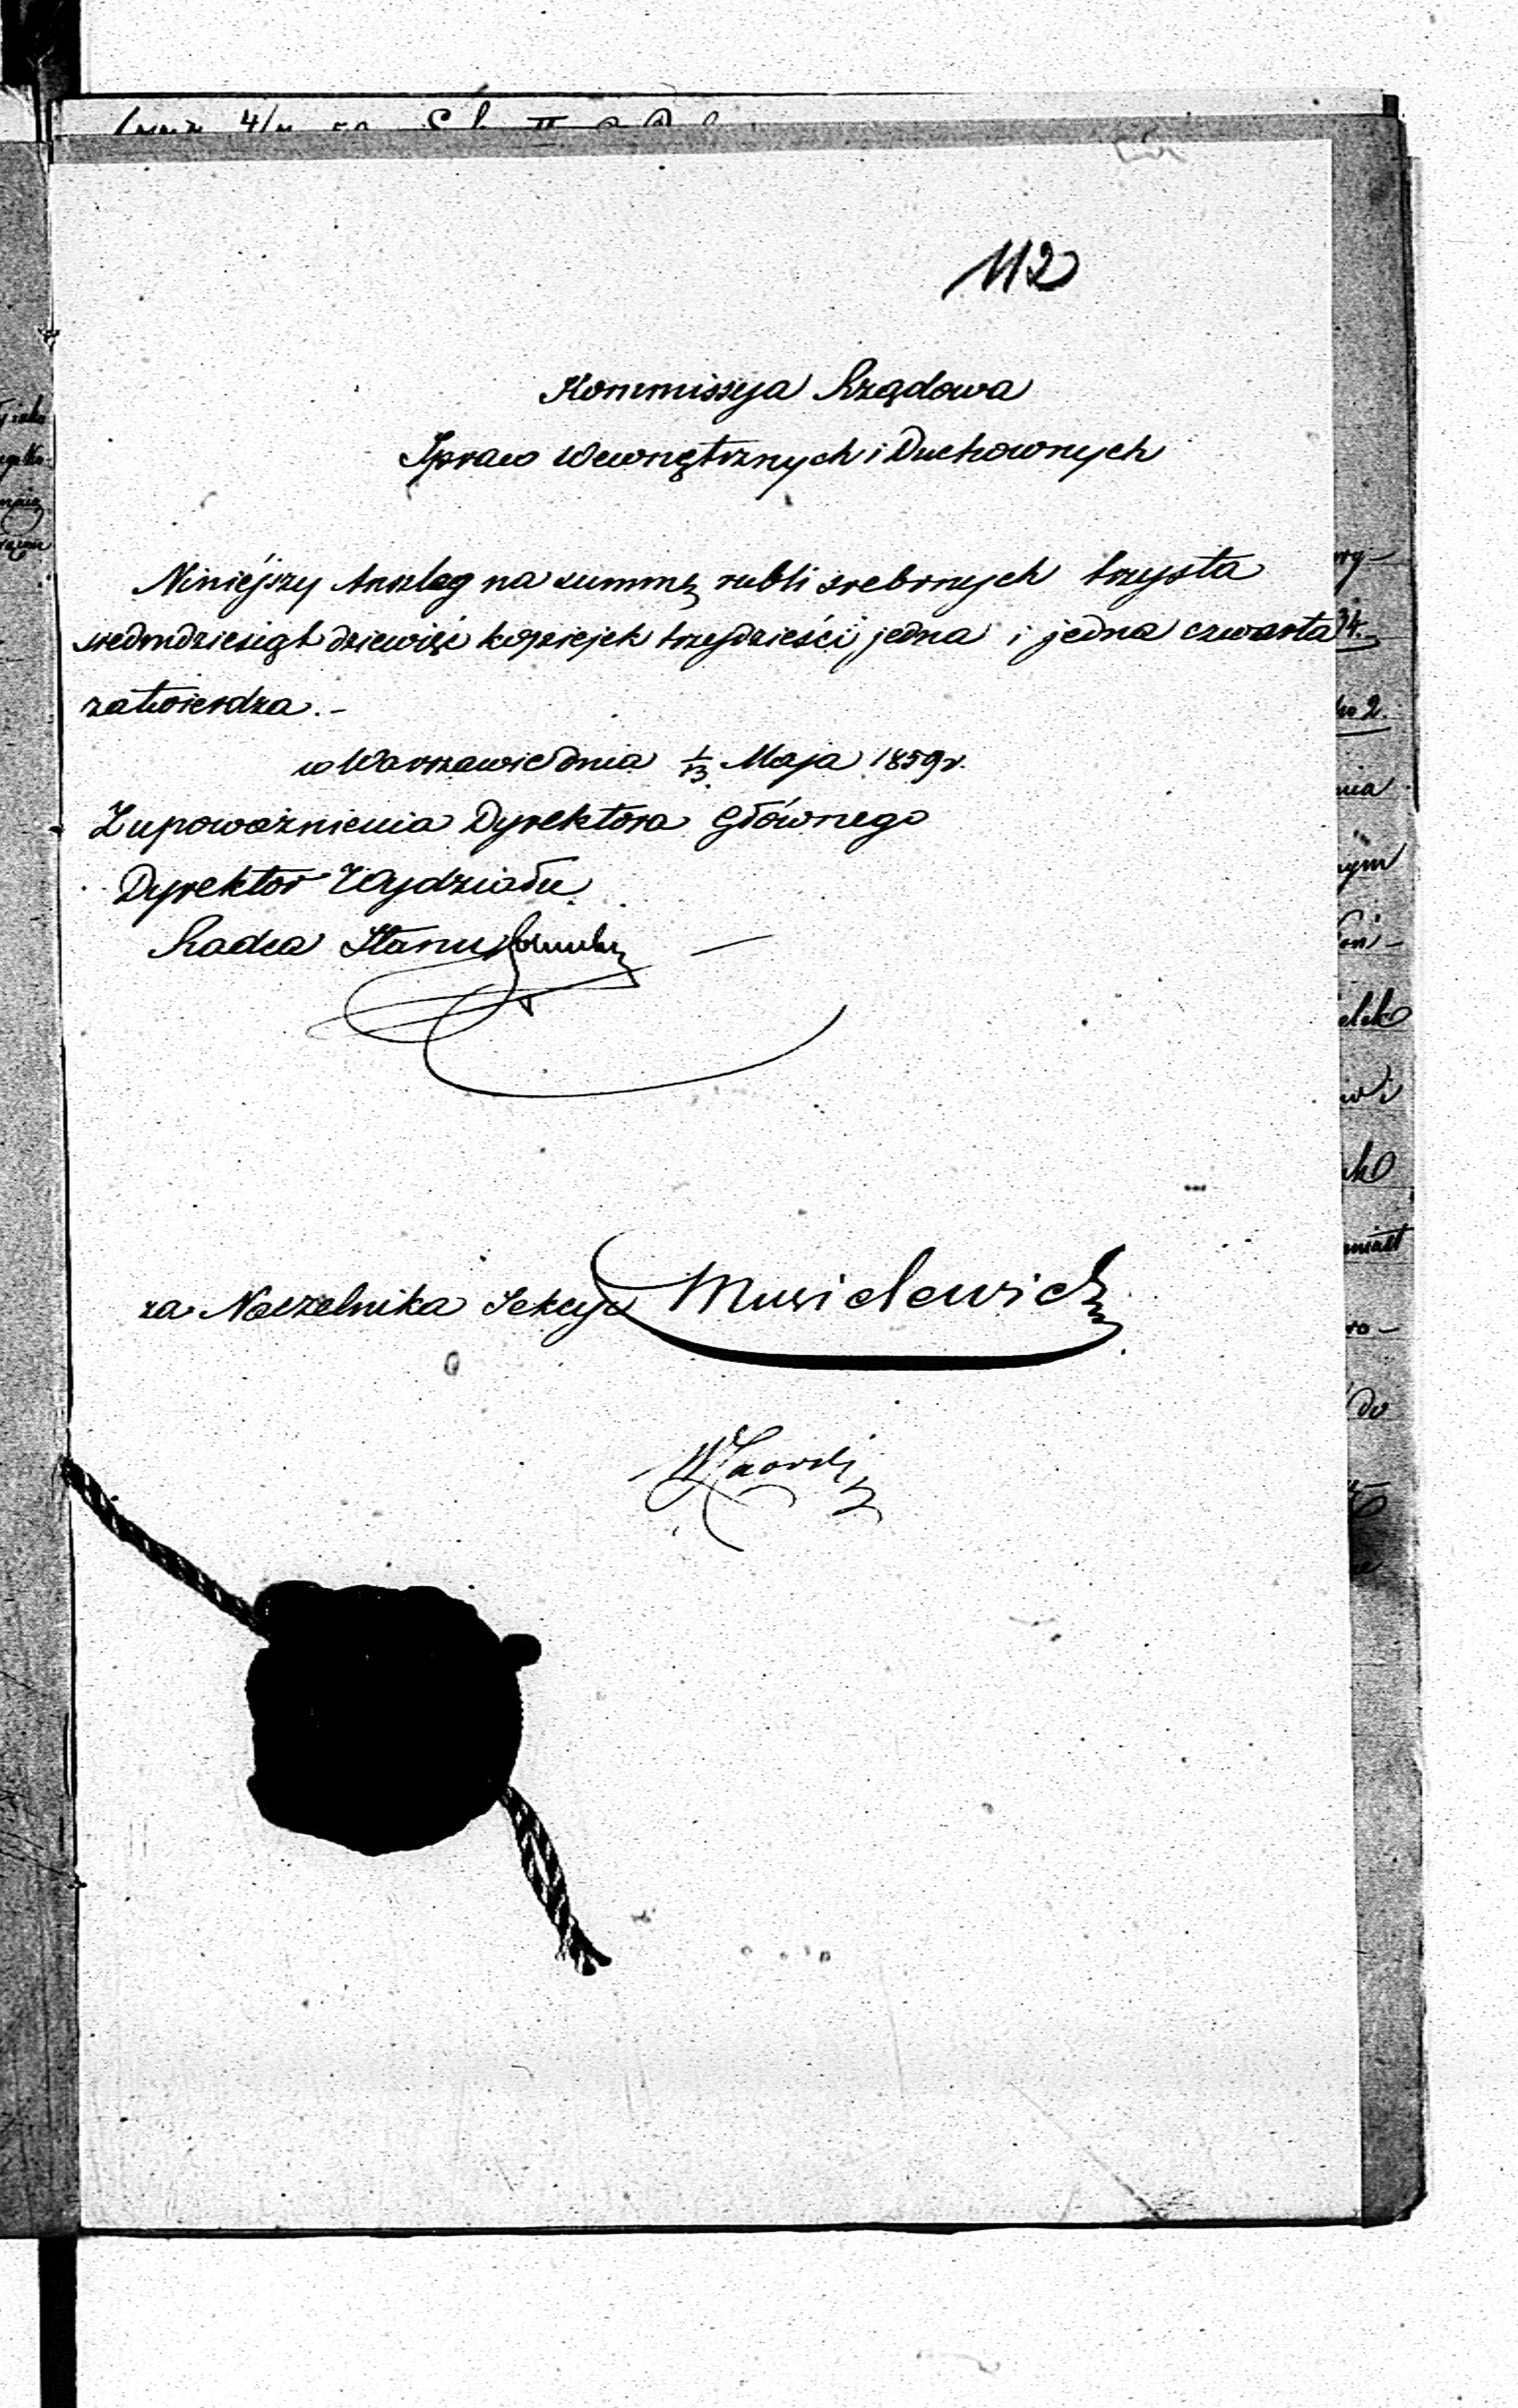 112
Kommissyja Rządowa
Spraw Wewnętrznych i Duchownych
Niniejszy Anszlag na summę rubli srebrnych trzysta
siedmdziesiąt dziewięć kopiejek trzydzieści jedna i jedna czwarta
zatwierdza.-
w Warszawie dnia 1/13 Maja 1859 r.
Z upoważnienia Dyrektora Głównego
Dyrektor Wydziału
Radca Stanu
za Naczelnika Sekcyi